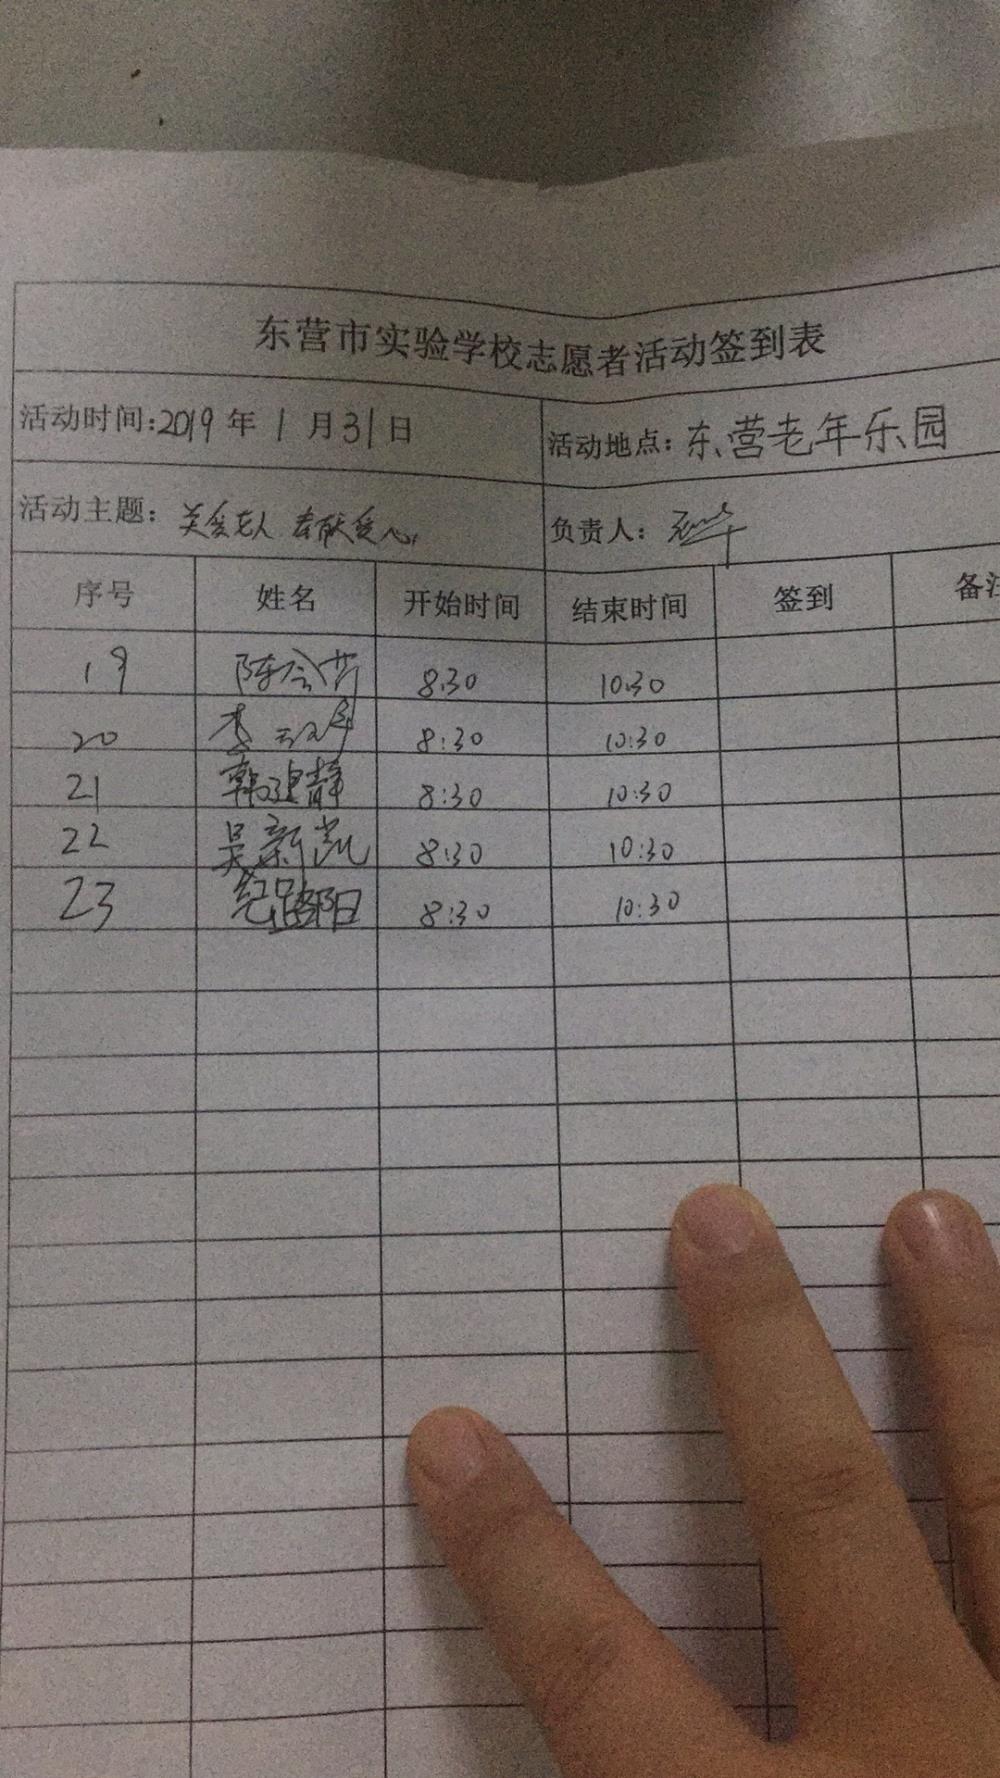 东营市实验学校志愿者活动签到表
活动时间:2019年1月31日 活动地点：东营老年乐园
活动主题：关爱老人 奉献爱心 负责人：
序号 姓名 开始时间 结束时间 签到 备注
19 8:30 10:30
20 李 8:30 10:30
21 韩建静 8:30 10:30
22 吴新凯 8:30 10:30
23 纪路阳 8:30 10:30